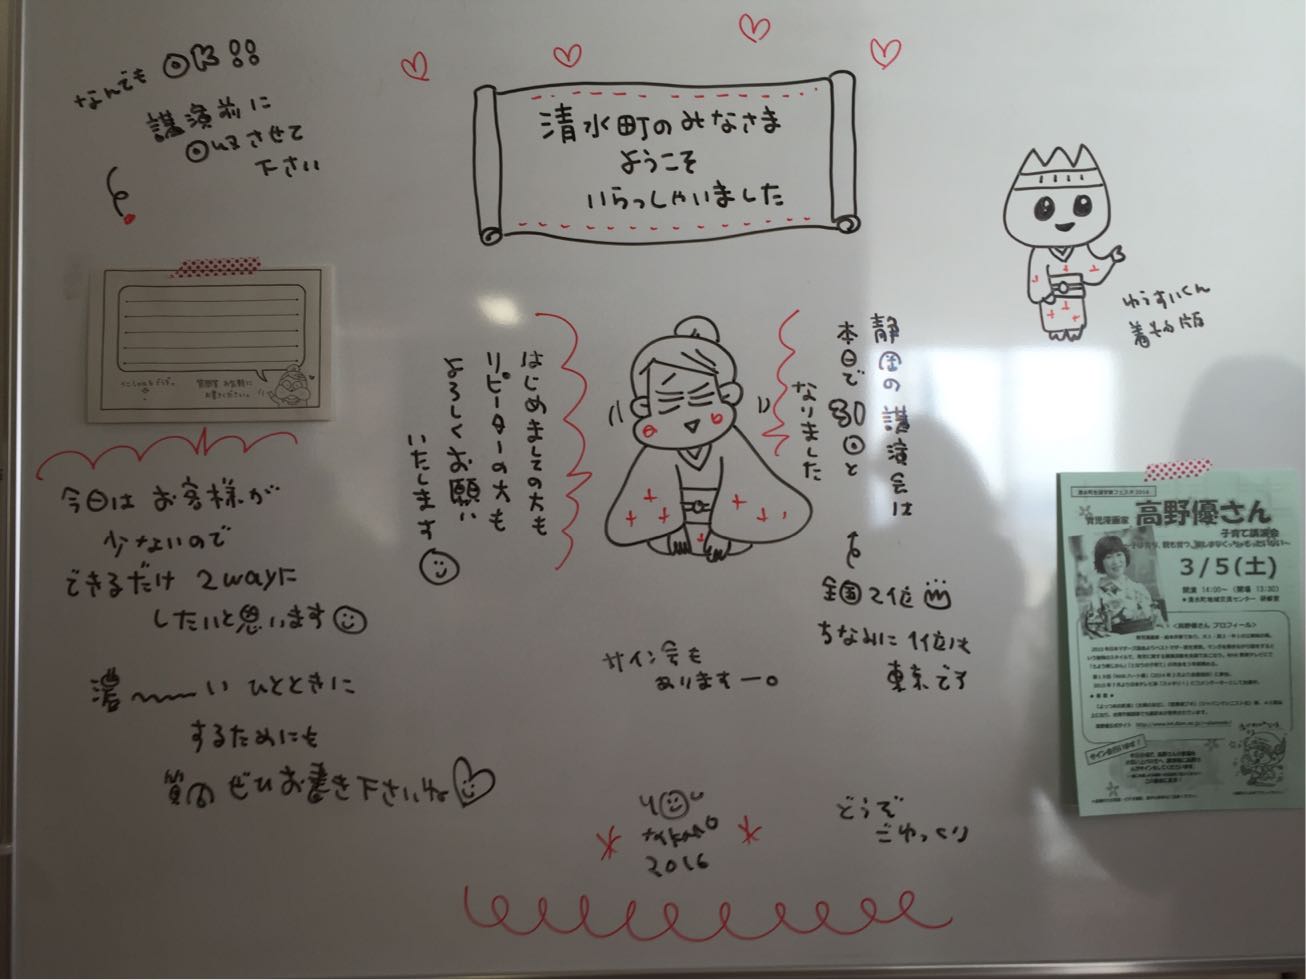 なんでも OK!!
講演前に
回収させて
下さい
清水町のみなさま
ようこそ
いらっしゃいました
ゆうすいくん
着もの版
静岡の講演会は
本日で30回と
なりました
はじめましての方も
リピーターの方も
よろしくお願い
いたします
全国2位
ちなみに1位は
東京です
今日は お客様が
少ないので
できるだけ 2wayに
したいと思います
濃～～い ひとときに
するためにも
質問 ぜひお書き下さいね
サイン会も
ありますー。
どうぞ
ごゆっくり
2016
育児漫画家 高野優さん
子育て講演会
3/5(土)
開演 14:00～ (開場 13:30)
＜高野優さん プロフィール＞
サイン会あります!